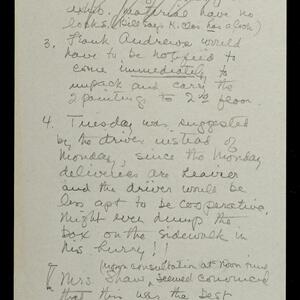 exhib. (material have no
locks. (Bill says K. Clos has a lock)
3. Frank Andrews would
have to be notified to
come immediately to
unpack and carry the
2 painting to 2nd floor
4. Tuesday was suggested
by the driver instead of
Monday, since the Monday
deliveries are heavier
and the driver would be
less apt to be cooperative.
Might even dump the
box on the sidewalk in
his hurry!!
(upon consultation at noon time
Mrs. Shaw, seemed convinced
that this was the best